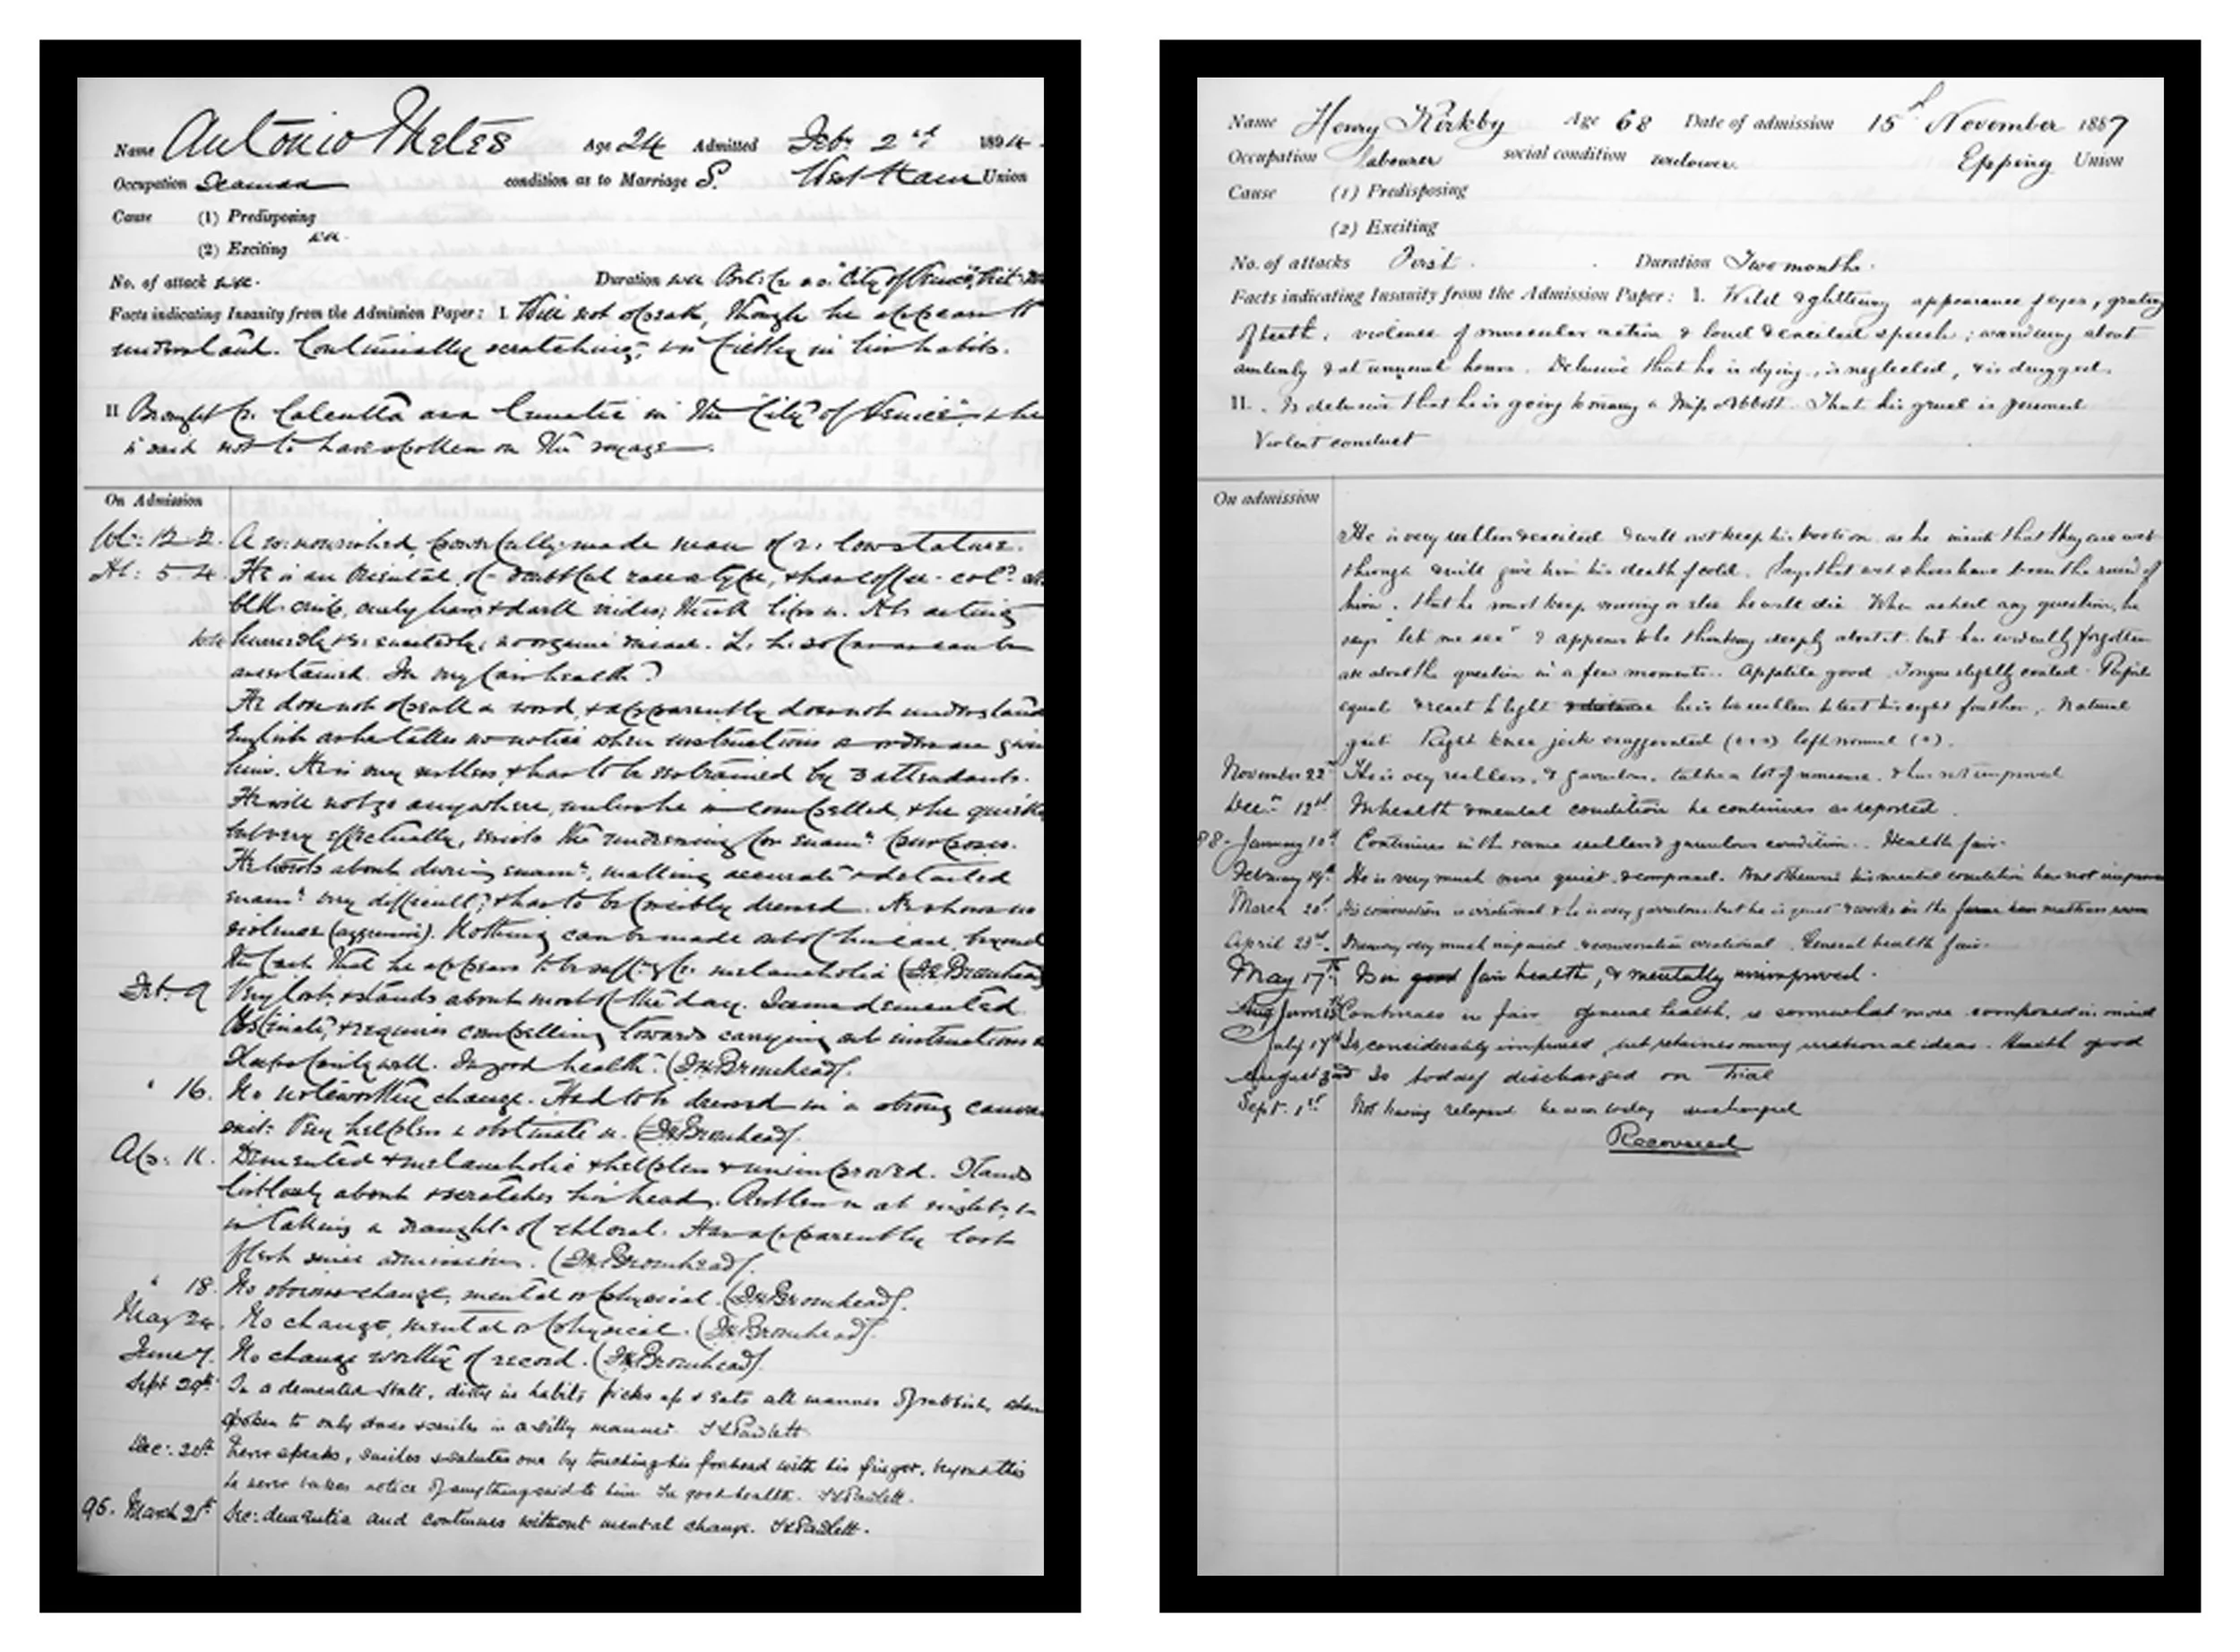 Name Antonio Antonio Age 24 Admitted Feb: 2nd 1894.
Occupation Seaman condition as to Marriage S. West Ham Union
Cause (1) Predisposing
(2) Exciting
No. of attack Duration "City of Venice",
Facts indicating Insanity from the Admission Paper: I. Will not speak, though he appears to
understand. Continually scratching, is filthy in his habits.
II Brought fr. Calcutta as a lunatic in the "City of Venice", & he
is said not to have spoken on the voyage.
On Admission
Wt: 12-2. A w. nourished, powerfully-made man of r. low stature.
Ht: 5-4. He is an Oriental, of doubtful race & type, & has coffee-col?
blk. curly hair & dark irides; thick lips
ascertained. In fair health?
He does not speak a word, & apparently does not understand
English as he takes no notice when instructions or orders are given
him. He is very restless, & has to be restrained by 3 attendants.
He will not go anywhere, unless he is compelled, & he quietly
but very effectually, resists the undressing for exam: purposes.
He twists about during exam:, making accurate & detailed
exam: very difficult; & has to be forcibly dressed. He shows no
violence (aggressive). Nothing can be made out of his case, beyond
the fact that he appears to be suff:g fr. melancholia (Bromhead)
Feb. 9 Very lost, & stands about most of the day. Seems demented
obstinate, & requires compelling towards carrying out instructions
Sleeps fairly well. In good health. (Bromhead).
" 16. No noteworthy change. Had to be dressed in a strong canvas
suit: Very helpless & obstinate (Bromhead).
Ap: 11. Demented & melancholic & helpless & unimproved. Stands
listlessly about & scratches his head. Restless at nights, &
is taking a draught of chloral. Has apparently lost
flesh since admission. (Bromhead).
" 18. No obvious change, mental or physical. (Bromhead).
May 24. No change, mental or physical. (Bromhead).
June 7. No change worthy of record. (Bromhead).
Sept 29th In a demented state, dirty in habits picks up & eats all manner of rubbish, when
spoken to only stares & smiles in a silly manner.
Dec: 20th Never speaks, smiles & salutes one by touching his forehead with his finger, beyond this
he never takes notice of anything said to him. In good health.
95. March 21st Sec: dementia and continues without mental change.
Name Henry Kirkby Age 68 Date of admission 15th November 1887
Occupation labourer social condition widower. Epping Union
Cause (1) Predisposing
(2) Exciting
No. of attacks First. Duration Two months.
Facts indicating Insanity from the Admission Paper: I. Wild & glittering appearance of eyes, grating
of teeth, violence of muscular action & loud & excited speech; wandering about
aimlessly & at unusual hours. Delusive that he is dying, is neglected, & is drugged.
II. Is delusive that he is going to marry a Miss Abbott. That his gruel is poisoned
Violent conduct
On admission
He is very restless & excited & will not keep his boots on as he insists that they are wet
through & will give him his death of cold. Says that wet shoes have been the ruin of
him. That he must keep moving or else he will die. When asked any question, he
says "let me see" & appears to be thinking deeply about it but has evidently forgotten
all about the question in a few moments. Appetite good. Tongue slightly coated. Pupils
equal & react to light & distance he is too restless to test his sight further. Natural
gait. Right knee jerk exaggerated (+++) left normal (+).
November 22nd He is very restless, & garrulous, talks a lot of nonsense & has not improved
Decr. 12th In health & mental condition he continues as reported.
88. January 10th Continues in the same restless & garrulous condition. Health fair.
February 19th He is very much more quiet & composed. But otherwise his mental condition has not improved
March 20th His conversation is irrational & he is very garrulous but he is quiet & works in the
April 23rd. Memory very much impaired & conversation irrational. General health fair.
May 17th Is in good fair health, & mentally unimproved.
Aug June 15th Continues in fair general health, is somewhat more composed in mind
July 17th Is considerably improved, but retains many irrational ideas. Health good
August 3rd Is today discharged on Trial
Sept. 1st Not having relapsed he was today discharged
Recovered